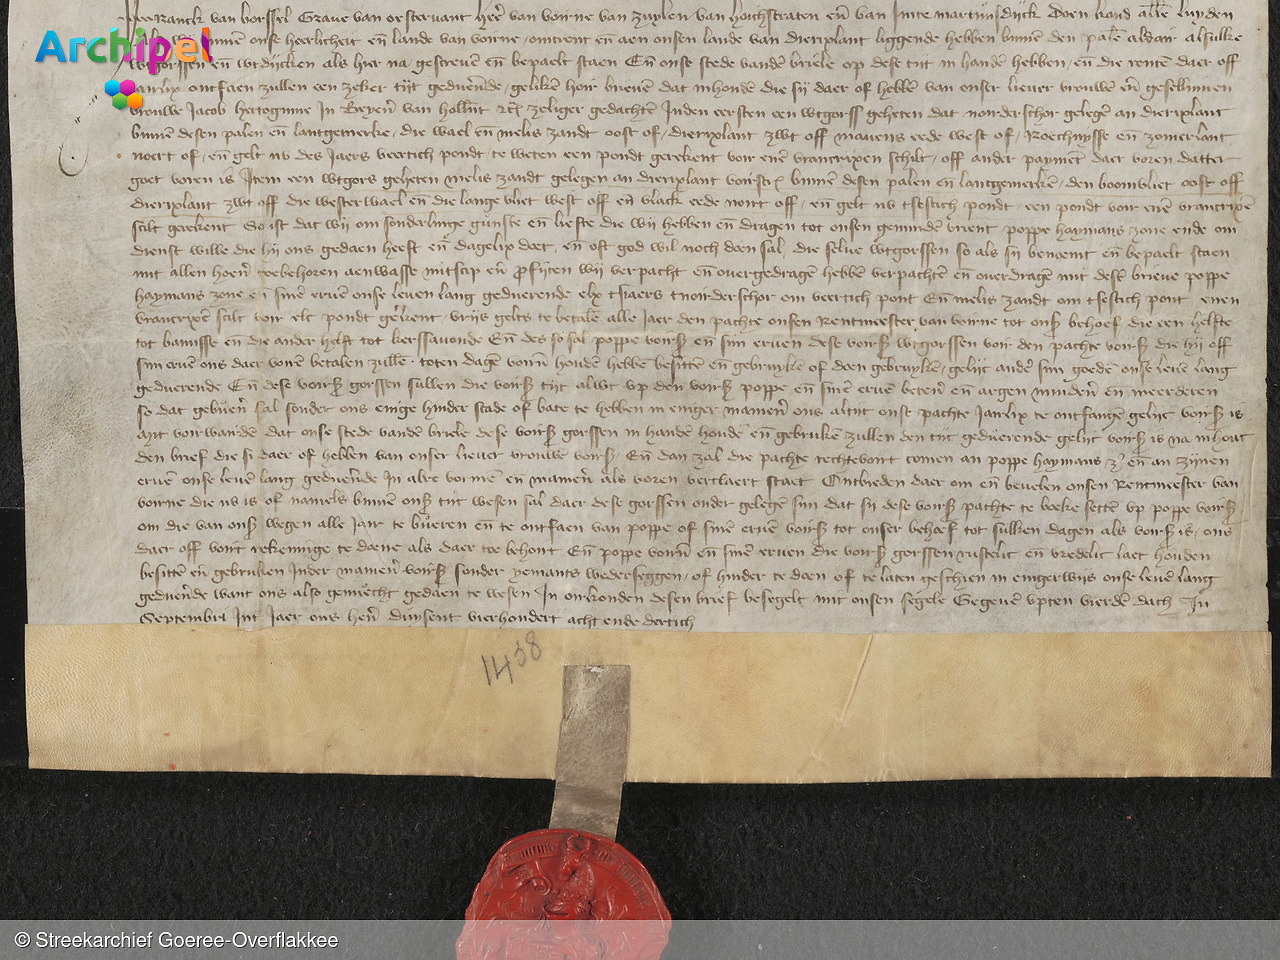 Vranck van borssel Grave van oestervant heer van voirne van zuylen van hoichstraten en̄ van sinte martijnsdijck doen kond allē luyden
binnē onse heerlicheit en̄ lande van voirne omtrent en̄ aen onsen lande van dierxlant liggende hebben binnē den palē aldair alsulke
wtgorssen en̄ wtdijcken als hier na gescreuē en̄ bepaelt staen En̄ onse stede vandē briele op dese tijt in handē hebben en̄ die rentē daer off
Jairlix ontfaen zullen een zeker tijt geduerēde gelikē hoir brieuē dat inhoudē die sij daer of hebbē van onser lieuer vrouwē en̄ gesellinnen
vrouwe Jacob hertoginne In Beyerē van hollāt etc̄ zeliger gedachtē Inden eersten een wtgorss geheten dat noirderschor gelegē an dierixlant
binnē desen palen en̄ lantgemerke die wael en̄ melis zandt oost of dierixlant zwt off mauens eede west of Roechnysse en̄ zomerlant
noert of en̄ gelt nv des Jaers veertich pondt te weten een pondt gerekent voir enē vrancrixen schilt off ander paymēt daer voren datter
goet voren is Item een wtgors geheten melis zandt gelegen an dierixlant voirscr̄ binnē desen palen en̄ lantgemerkē den boomvliet oost off
dierixlant zwt off die westerwael en̄ die lange vliet west off en̄ vlack eede nort off en̄ gelt nv tsestich pondt een pondt voir enē vrancrixē
scilt gerekent So ist dat wij om sonderlinge gunste en̄ liefte die wij hebben en̄ dragen tot onsen gemindē vrient poppe haymans zone ende om
dienst wille die hij ons gedaen heeft en̄ dagelix doet en̄ oft god wil noch doen sal die selue wtgorssen so als sij benoemt en̄ bepaelt staen
mit allen horē toebehoren aenwasse mitscip en̄ profijten wij verpacht en̄ overgedragē hebbē verpachtē en̄ overdragē mit desē brieue poppe
haymans zone en̄ sinē eruē onse leuen lang geduerende elx tsiaers tnoirderschor om veertich pont En̄ melis zandt om tsestich pont enen
vrancrixē scilt voir elc pondt gerekent vrijs gelts te betalē alle Jaer den pachte onsen Rentmeester van voirne tot ons behoef die een helfte
tot bamisse en̄ die ander helft tot kerssauonde En̄ des so sal poppe voirs en̄ sijn eruen dese voirs wtgorssen voir den pachte voirs die hij off
sijn eruē ons daer vorē betalen zullē toten dagē voirn̄ houdē hebbē besittē en̄ gebruykē of doen gebruykē gelijc andē sijn goede onse leuē lang
geduerende En̄ dese voirs gorssen sullen die voirs tijt altijt vp den voirs poppe en̄ sinē eruē beterē en̄ argen mindē en̄ meerderen
so dat gebuerē sal sonder ons enige hinder stade of bate te hebben in eniger manierē ons altijt onse pachte Jairlix te ontfangē gelijc voirs is
Mit voirwardē dat onse stede vandē briele dese voirs gorssen in handē houdē en̄ gebrukē zullen den tijt geduerende gelijc voirs is na inhout
den brief die si daer of hebben van onser lieuer vrouwē voirs En̄ dan zal die pachte rechtevort comen an poppe haymans z̄ en̄ an zijnen
eruē onse leuē lang geduerēde In alre vormē en̄ manierē als voren verclaert staet Ontbieden daer om en̄ beuelen onsen Rentmeester van
voirne die nv is of namels binnē onser tijt wesen sal daer dese gorssen onder gelegē sijn dat sij dese voirs pachte te boeke settē vp poppe voirs
om die van onser wegen alle Jair te bueren en̄ te ontfaen van poppe of sinē eruē voirs tot onser behoef tot sulken dagen als voirs is ons
daer off voirt rekeninge te doene als daer toe behoirt En̄ poppe voirn̄ en̄ sinē eruen die voirs gorssen rustelic en̄ vredelic laet houden
besittē en̄ gebruken Inder manierē voirs sonder yemants wederseggen of hinder te doen of te laten geschien in enigerwijs onse leuē lang
geduerēde want ons also genuecht gedaen te wesen In oirkonden desen brief besegelt mit onsen segele Gegeuē vpten vierdē dach In
Septembri Int Jaer ons herē duysent vierhondert acht ende dertich
1438
Archipel
© Streekarchief Goeree-Overflakkee